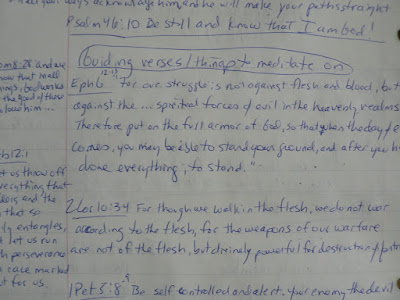 ways acknowledge him, and he will make your paths straight
Psalm 46:10 Be still and know that I am God!
Guiding verses/things to meditate on
Eph 6 12-13 For our struggle is not against flesh and blood, but
against the ... spiritual forces of evil in the heavenly realms
Therefore put on the full armor of God, so that when the day of e
comes, you may be able to stand your ground, and after you h
done everything, to stand."
2 Cor 10:3-4 For though we walk in the flesh, we do not war
according to the flesh, for the weapons of our warfare
are not of the flesh, but divinely powerful for destruction of fortr
1 Pet 5:8-9 Be self controlled and alert. Your enemy the devil
oms 8:28 and we
now that in all
things, God works
the good of those
o love him...
eb 12:1
t us throw off
verything that
ders and the
n that so
ly entangles,
d let us run
th perseverance
e race marked
ut for us.